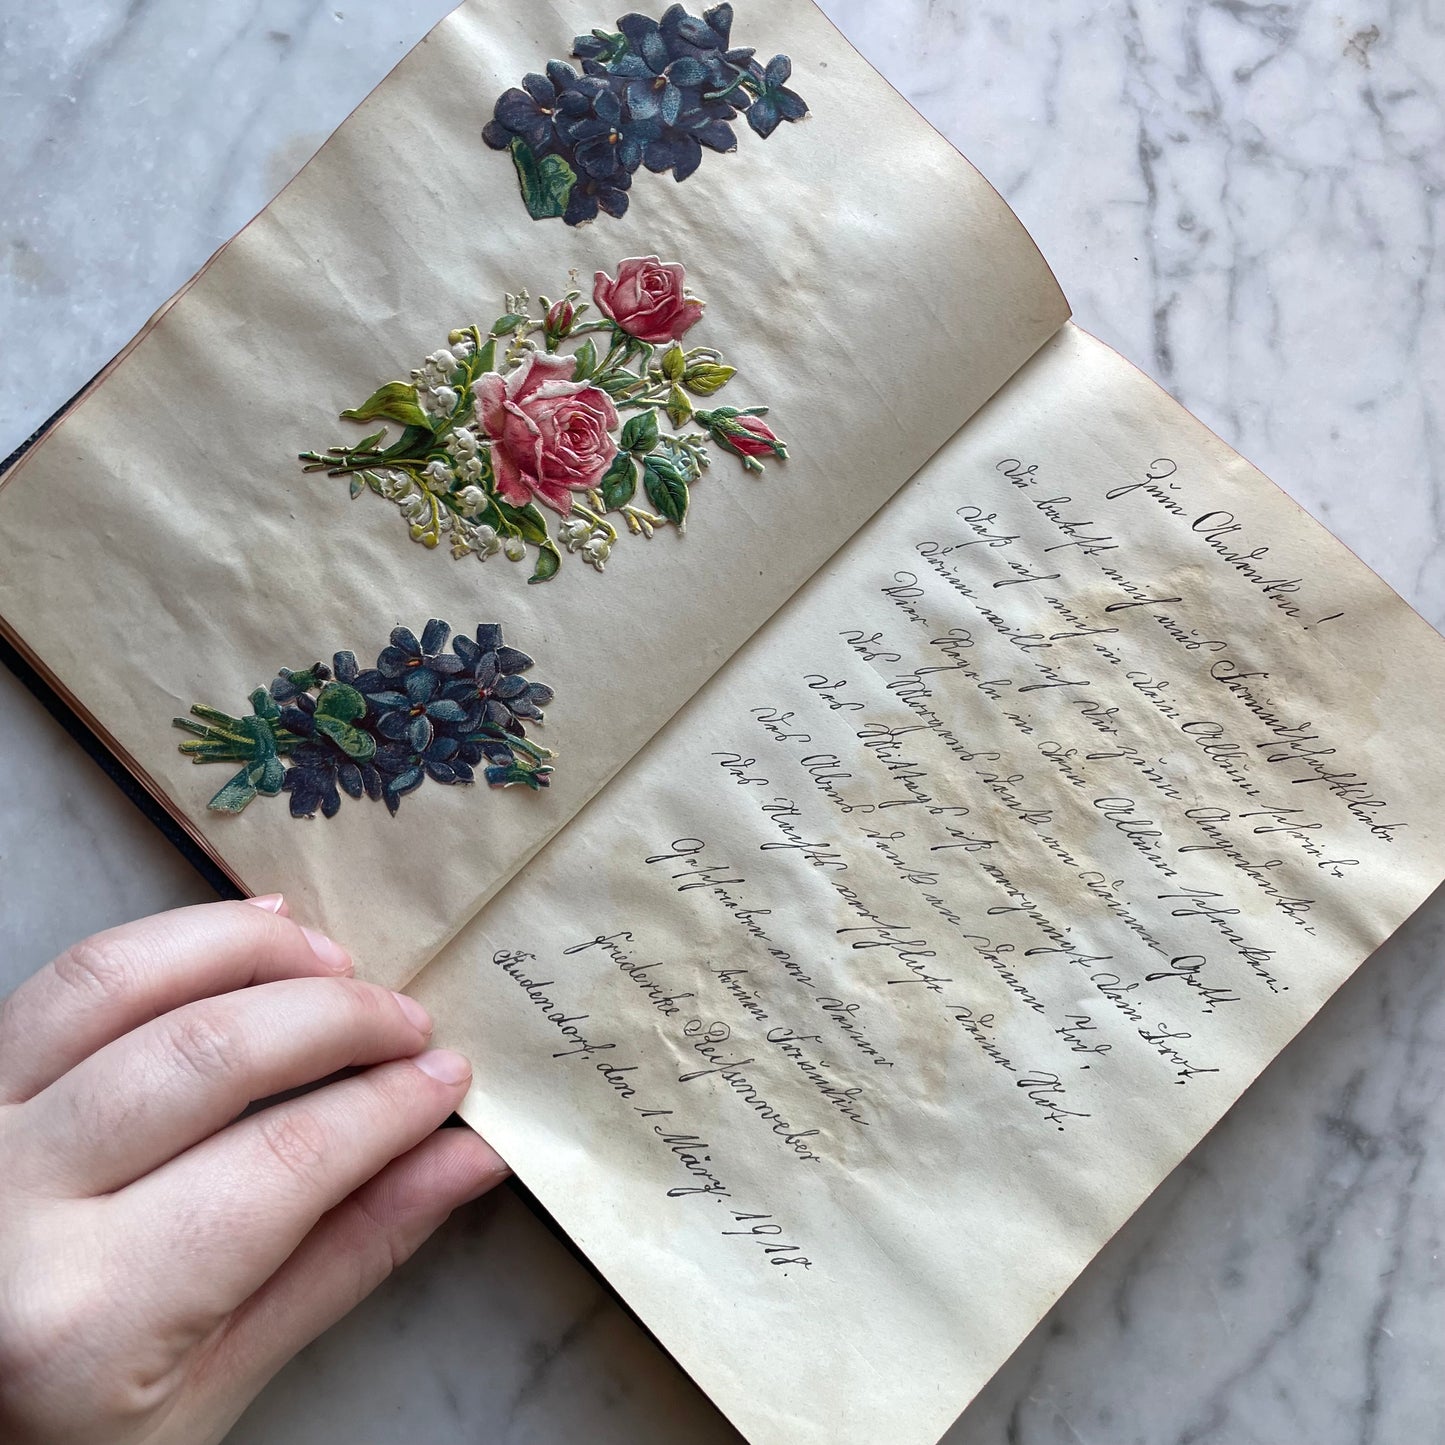 Zum Andenken!
Du batest mich aus Freundschaftsliebe
Daß ich mich in dein Album schriebe
Drum will ich dir zum Angedenken
Vier Regeln in dein Album schenken:
Des Morgens denk an deinen Gott,
Des Mittags iß vergnügt dein Brot,
Des Abends denk an deinen Tod,
Des Nachts verschlafe deine Not.
Geschrieben von deiner
treuen Freundin
Friederike Reißenweber
Rudendorf, den 1 März. 1918.